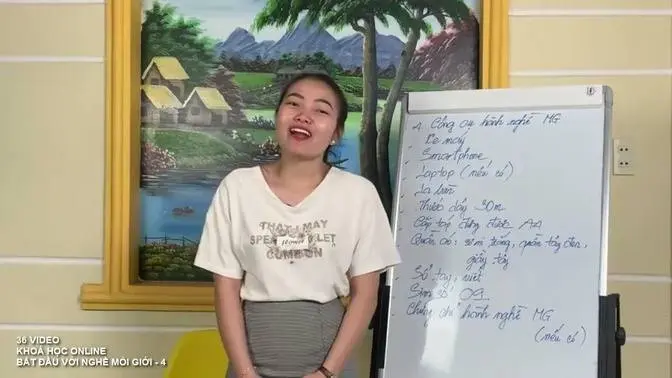 1. Công cụ hành nghề MG
Xe máy
Smartphone
Laptop (nếu có)
La bàn
Thước dây 30m
Cặp táp đựng được A4
Quần áo: sơ mi trắng, quần tây đen,
giày tây
Sổ tay, viết
Sim số
Chứng chỉ hành nghề MG
(nếu có)
THAT I MAY
COMMON
36 VIDEO
KHOÁ HỌC ONLINE
BẮT ĐẦU VỚI NGHỀ MÔI GIỚI - 4